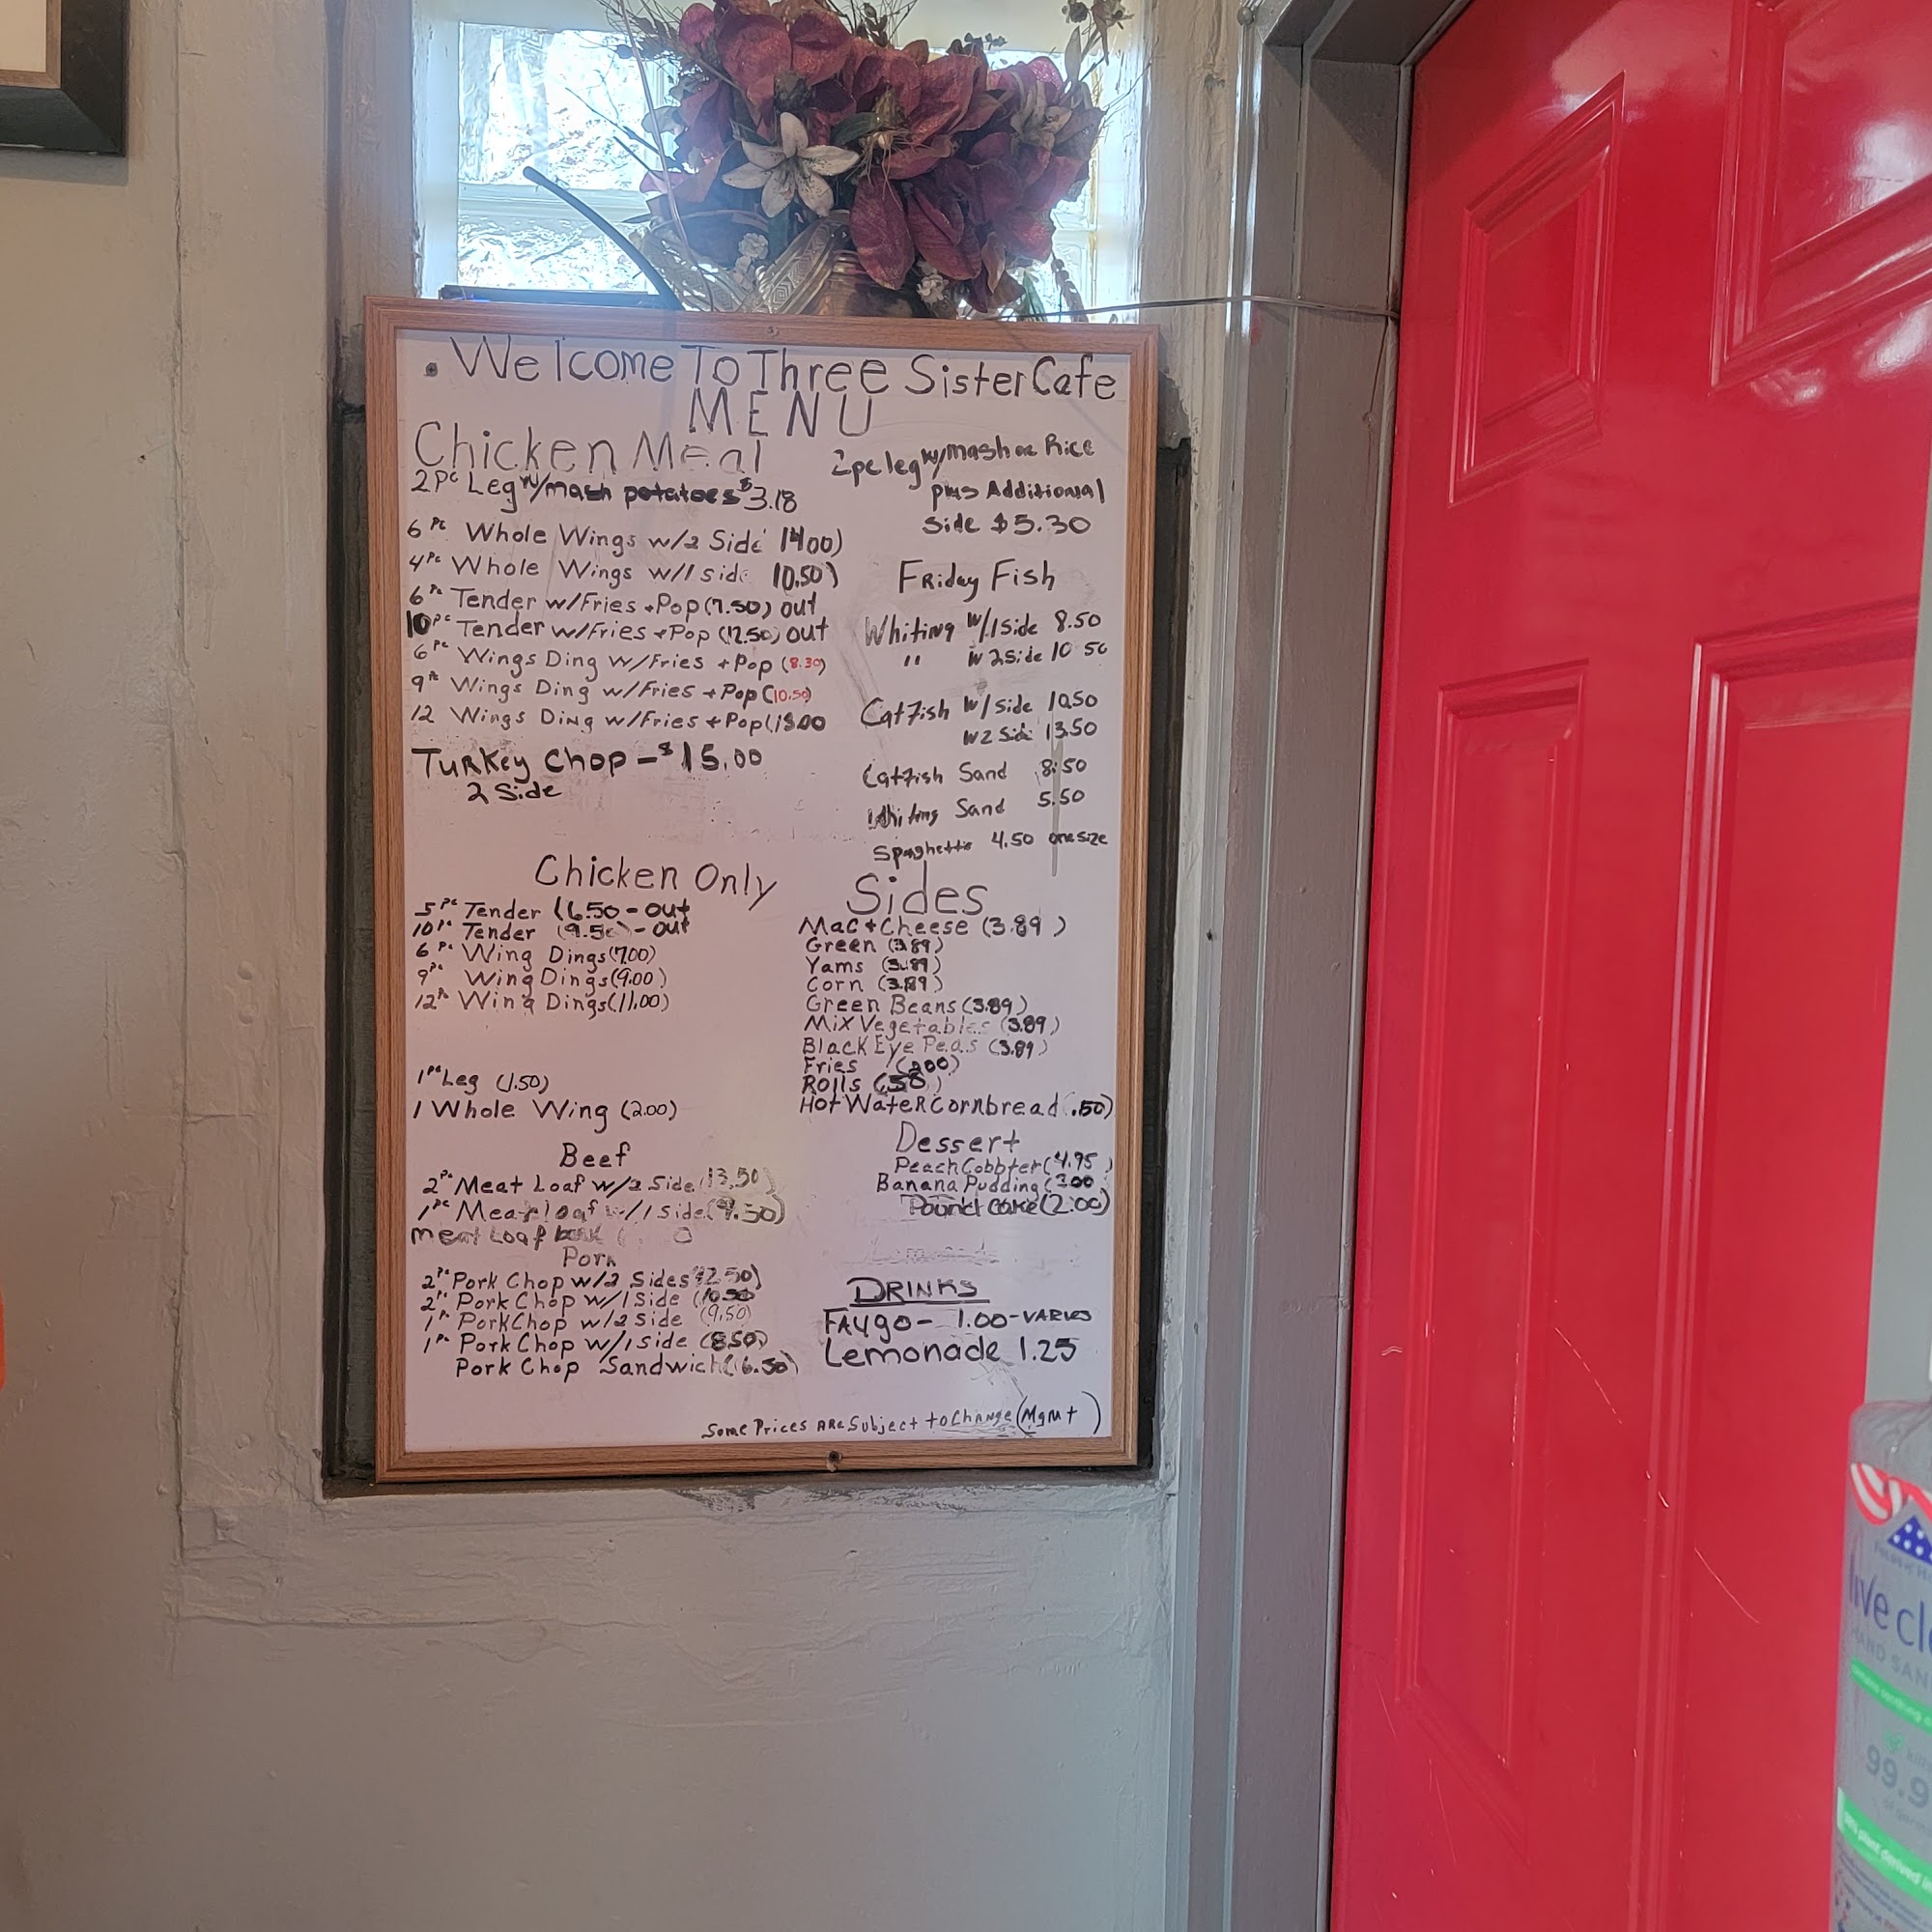 Welcome To Three Sister Cafe
MENU
Chicken Meal
2pc Leg w/mash potatoes $3.18
6pc Whole Wings w/2 Side 14.00)
4pc Whole Wings w/1 side 10.50)
6pc Tender w/Fries + Pop (7.50) out
10pc Tender w/Fries + Pop (12.50) out
6pc Wings Ding w/Fries + Pop (8.30)
9pc Wings Ding w/Fries + Pop (10.50)
12 Wings Ding w/Fries + Pop
Turkey Chop - $15.00
2 Side
2pc leg w/mash or Rice
plus Additional
Side $5.30
Friday Fish
Whiting w/1 Side 8.50
" w 2 Side 10 50
Catfish w/1 side 10.50
w 2 Side 13.50
Catfish Sand 8.50
Whiting Sand 5.50
Spaghetti 4.50 one size
Chicken Only
5pc Tender (6.50 - out
10pc Tender (9.50) - out
6pc Wing Dings (7.00)
9pc Wing Dings (9.00)
12pc Wing Dings (11.00)
1pc Leg (1.50)
1 Whole Wing (2.00)
Beef
2pc Meat Loaf w/2 Side (13.50)
1pc Meat loaf w/1 side (9.50)
meat Loaf
Pork
2pc Pork Chop w/2 Sides 12.50)
2pc Pork Chop w/1 Side (10.50
1pc Pork Chop w/2 Side (9.50)
1pc Pork Chop w/1 side (8.50)
Pork Chop Sandwich (6.50)
Sides
Mac + Cheese (3.89)
Green (3.89)
Yams (3.89)
Corn (3.89)
Green Beans (3.89)
Mix Vegetables (3.89)
Black Eye Peas (3.89)
Fries (2.00)
Rolls (.50)
Hot Water Cornbread (.50)
Dessert
Peach Cobbler (4.95)
Banana Pudding (3.00
Pound Cake (2.00)
DRINKS
FAygo - 1.00 - VARIES
Lemonade 1.25
Some Prices ARe Subject to Change (Mgmt)
live cl
HAND SAN
99.9